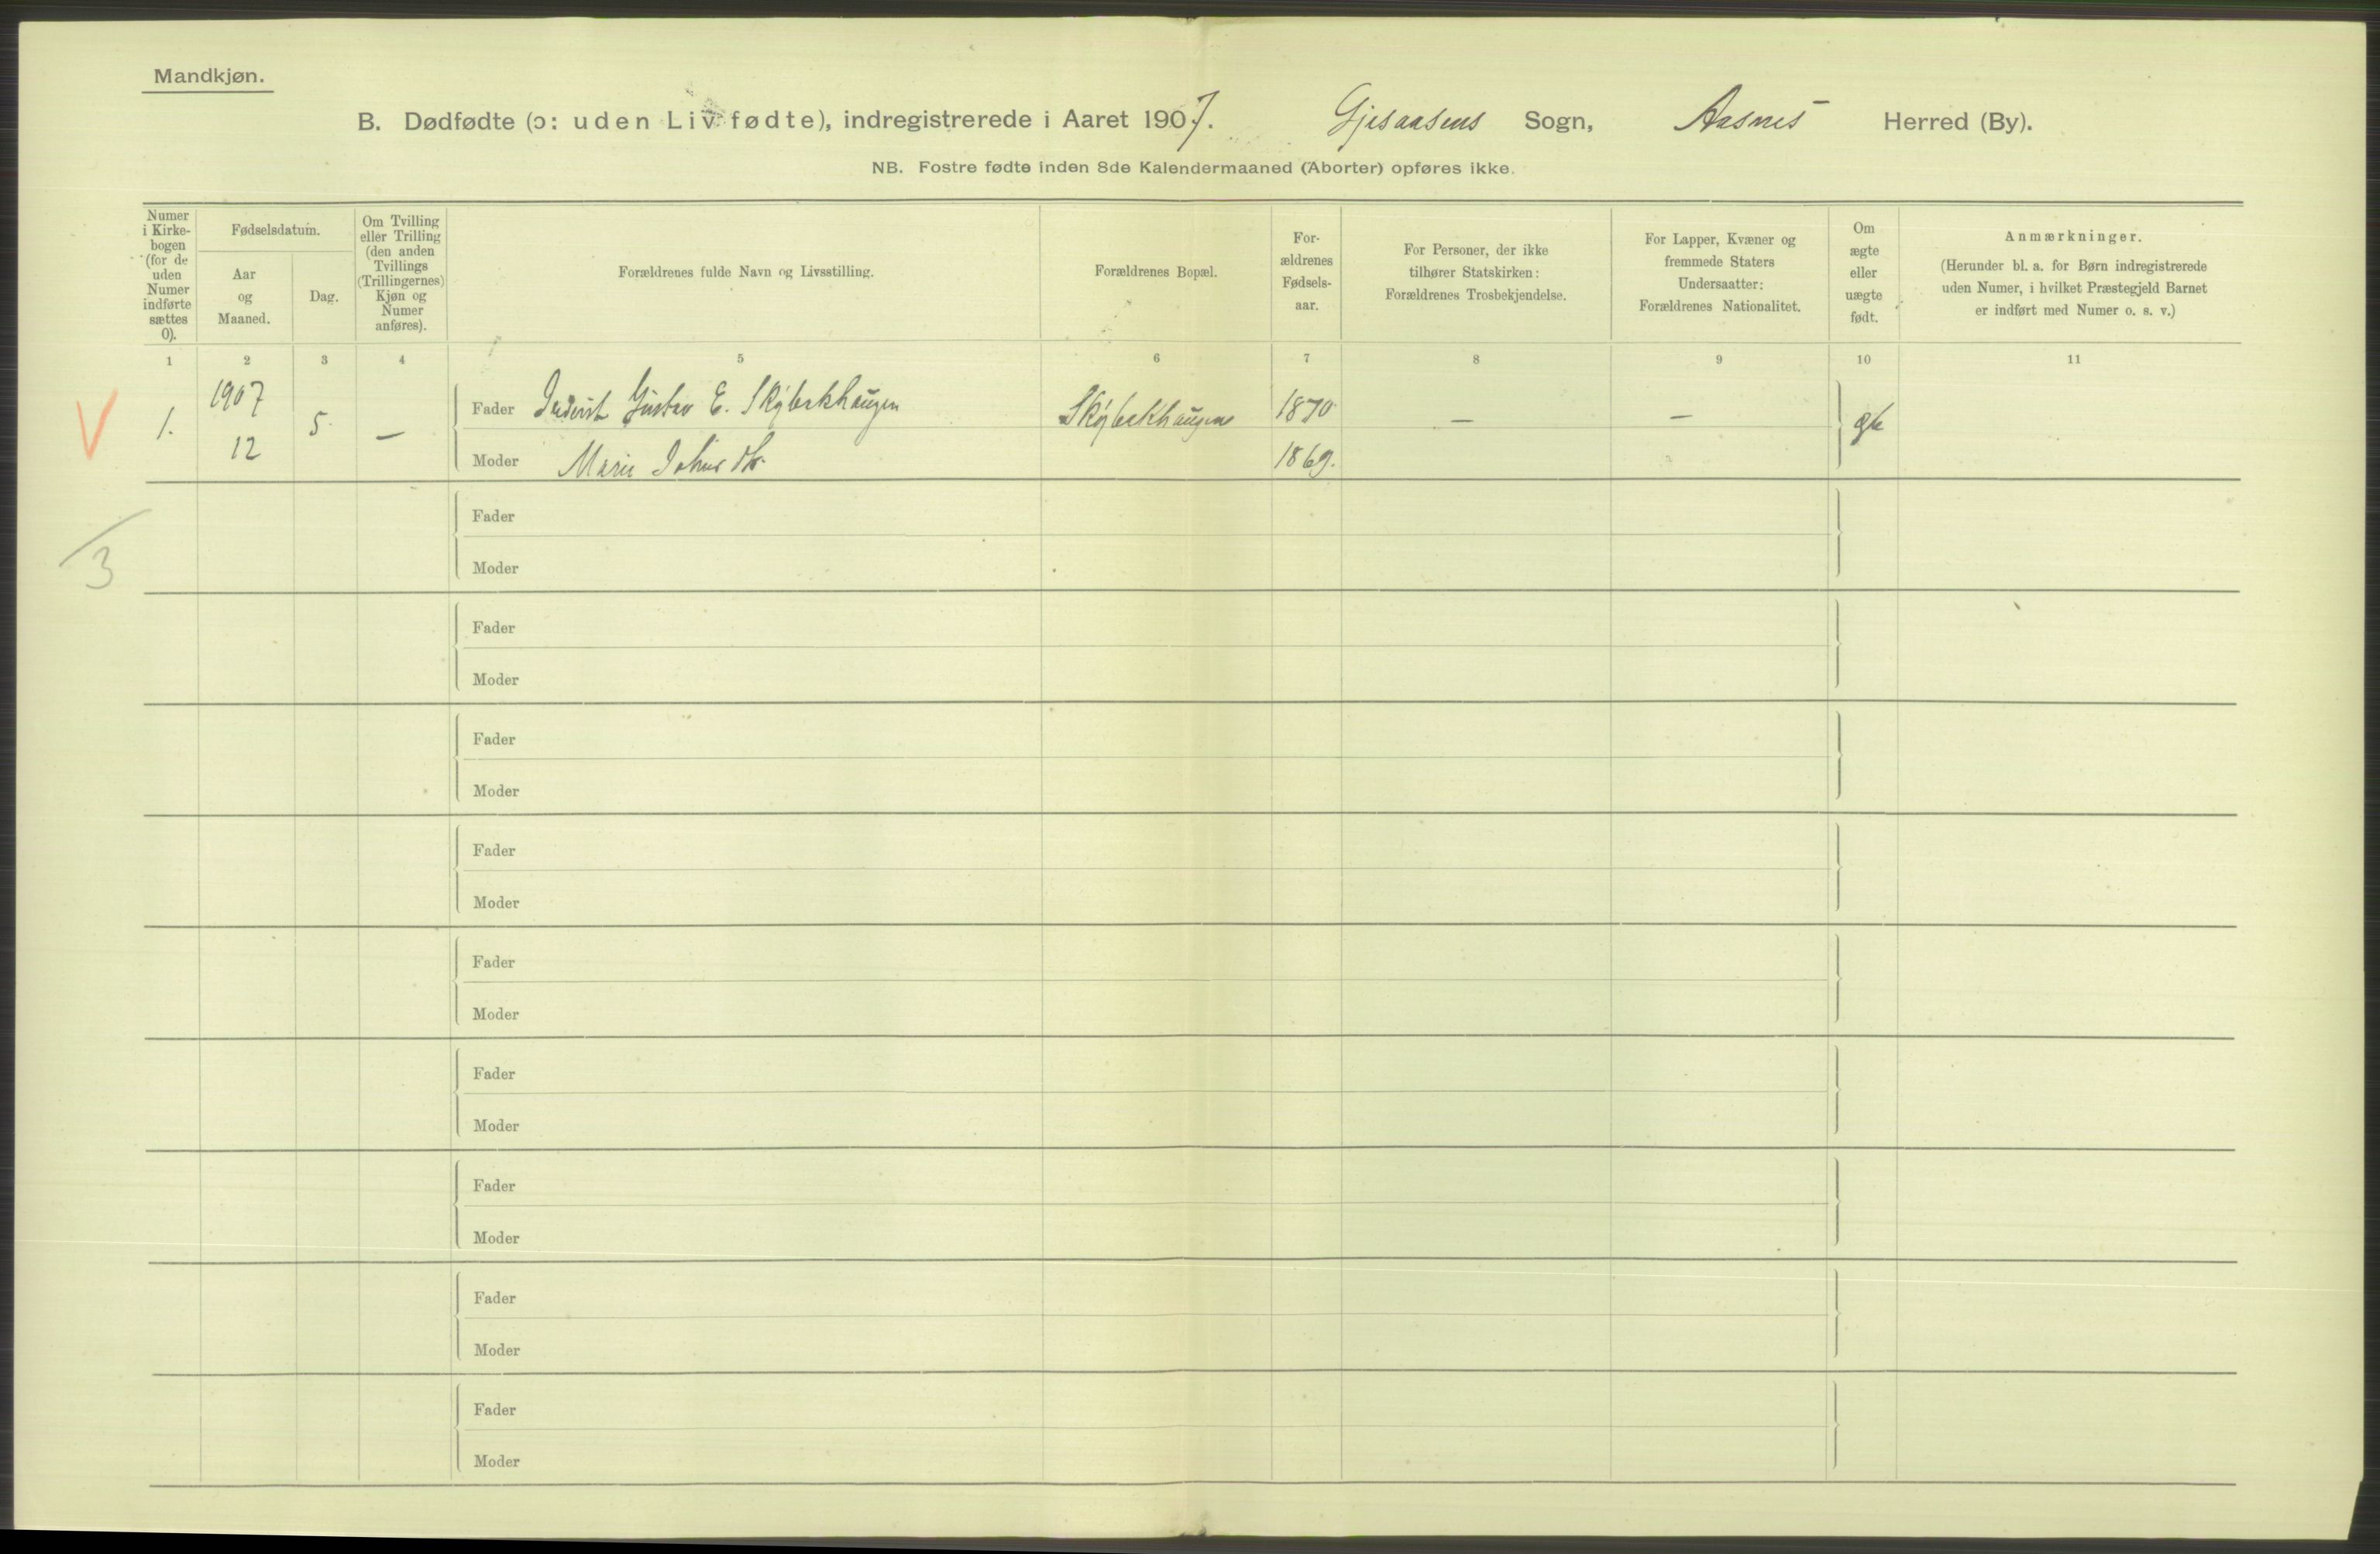 Mandkjøn.
B. Dødfødte (ɔ: uden Liv fødte), indregistrerede i Aaret 1907. Gjesaasens Sogn, Aasnes Herred (By).
NB. Fostre fødte inden 8de Kalendermaaned (Aborter) opføres ikke.
Numer
i Kirke-
bogen
(for de
uden
Numer
indførte
sættes
0).
Fødselsdatum.
Aar
og
Maaned.
Dag.
Om Tvilling
eller Trilling
(den anden
Tvillings
(Trillingernes)
Kjøn og
Numer
anføres).
Forældrenes fulde Navn og Livsstilling.
Forældrenes Bopæl.
For-
ældrenes
Fødsels-
aar.
For Personer, der ikke
tilhører Statskirken:
Forældrenes Trosbekjendelse.
For Lapper, Kvæner og
fremmede Staters
Undersaatter:
Forældrenes Nationalitet.
Om
ægte
eller
uægte
født.
Anmærkninger.
(Herunder bl. a. for Børn indregistrerede
uden Numer, i hvilket Præstegjeld Barnet
er indført med Numer o. s. v.)
1 2 3 4 5 6 7 8 9 10 11
V
1.
1907
12
5.
—
Fader Inderst Gustav E. Skybækhaugen
Moder Marie Johns dtr.
Skybækhaugen
1870
1869.
—
—
3
Fader
Moder
Fader
Moder
Fader
Moder
Fader
Moder
Fader
Moder
Fader
Moder
Fader
Moder
Fader
Moder
Fader
Moder